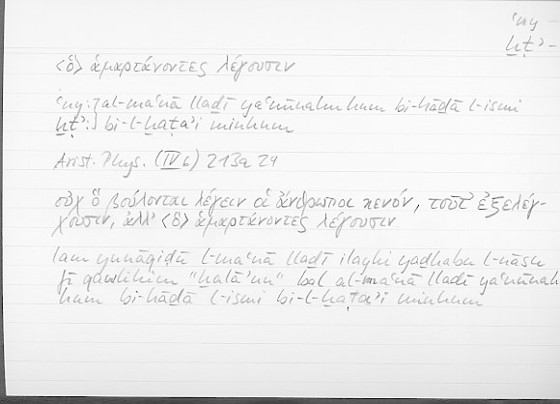 ʿny –
ḫṭʾ –
<ὃ> ἁμαρτάνοντες λέγουσιν
ʿny: al-maʿnā lladī yaʿnūnahu hum bi-hādā l-ismi
ḫṭʾ: bi-l-ḫaṭaʾi minhum
Arist. Phys. (IV 6) 213a 24
οὐχ ὃ βούλονται λέγειν οἱ ἄνθρωποι κενόν, τοῦτʼ ἐξελέγ-
χουσιν, ἀλλʼ <ὃ> ἁμαρτάνοντες λέγουσιν
lam yunāqiḍū l-maʿnā lladī ilayhi yadhabu l-nāsu
fī qawlihim "ḫalāʾun" bal al-maʿnā lladī yaʿnūnah
hum bi-hādā l-ismi bi-l-ḫaṭaʾi minhum